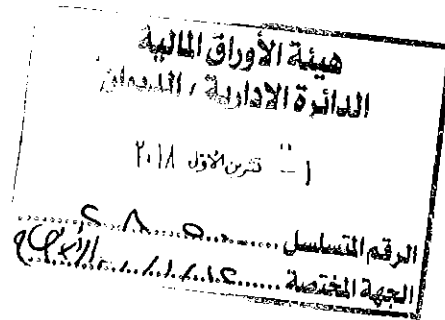 هيئة الأوراق المالية
الدائرة الادارية / الديوان
١ - تشرين الاول ٢٠١٨
الرقم المتسلسل
الجهة المختصة